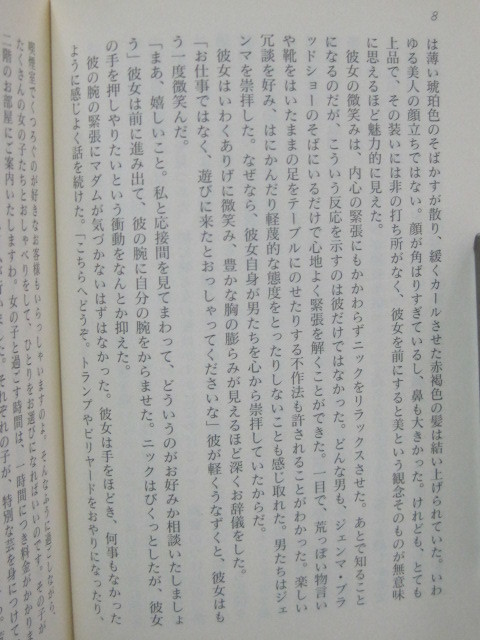 8
は薄い琥珀色のそばかすが散り、緩くカールさせた赤褐色の髪は結い上げられていた。いわ
ゆる美人の顔立ちではない。顔が角ばりすぎているし、鼻も大きかった。けれども、とても
上品で、その装いには非の打ち所がなく、彼女を前にすると美という観念そのものが無意味
に思えるほど魅力的に見えた。
彼女の微笑みは、内心の緊張にもかかわらずニックをリラックスさせた。あとで知ること
になるのだが、こういう反応を示すのは彼だけではなかった。どんな男も、ジェンマ・ブラ
ッドショーのそばにいるだけで心地よく緊張を解くことができた。一目で、荒っぽい物言い
や靴をはいたままの足をテーブルにのせたりする不作法も許されることがわかった。楽しい
冗談を好み、はにかんだり軽蔑的な態度をとったりしないことも感じ取れた。男たちはジェ
ンマを崇拝した。なぜなら、彼女自身が男たちを心から崇拝していたからだ。
彼女はいわくありげに微笑み、豊かな胸の膨らみが見えるほど深くお辞儀をした。
「お仕事ではなく、遊びに来たとおっしゃってくださいな」彼が軽くうなずくと、彼女はも
う一度微笑んだ。
「まあ、嬉しいこと。私と応接間を見てまわって、どういうのがお好みか相談いたしましょ
う」彼女は前に進み出て、彼の腕に自分の腕をからませた。ニックはびくっとしたが、彼女
の手を押しやりたいという衝動をなんとか抑えた。
彼の腕の緊張にマダムが気づかないはずはなかった。彼女は手をほどき、何事もなかった
ように感じよく話を続けた。「こちらへどうぞ。トランプやビリヤードをおやりになったり、
喫煙室でくつろぐのが好きなお客様もいらっしゃいますのよ。そんなふうに過ごしながら、
たくさんの女の子たちとおしゃべりをして、ひとりをお選びになればいいのです。その子が
二階のお部屋にご案内いたしますわ。女の子と過ごす時間は、一時間につき料金がかかりま
それぞれの子が、特別な芸を身につけて